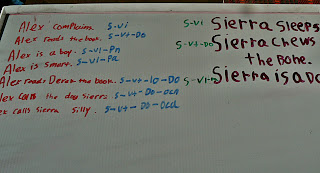 Alex complains. S-Vi
Alex reads the book. S-Vt-DO
Alex is a boy. S-Vl-Pn
Alex is smart. S-Vl-Pa
Alex reads Derek the book. S-Vt-IO-DO
lex calls the dog Sierra S-Vt-DO-OCn
ex calls Sierra silly. S-Vt-DO-OCa
S-Vi Sierra sleeps
S-Vt-DO Sierra chews
the bone.
S-Vl- Sierra is a DO